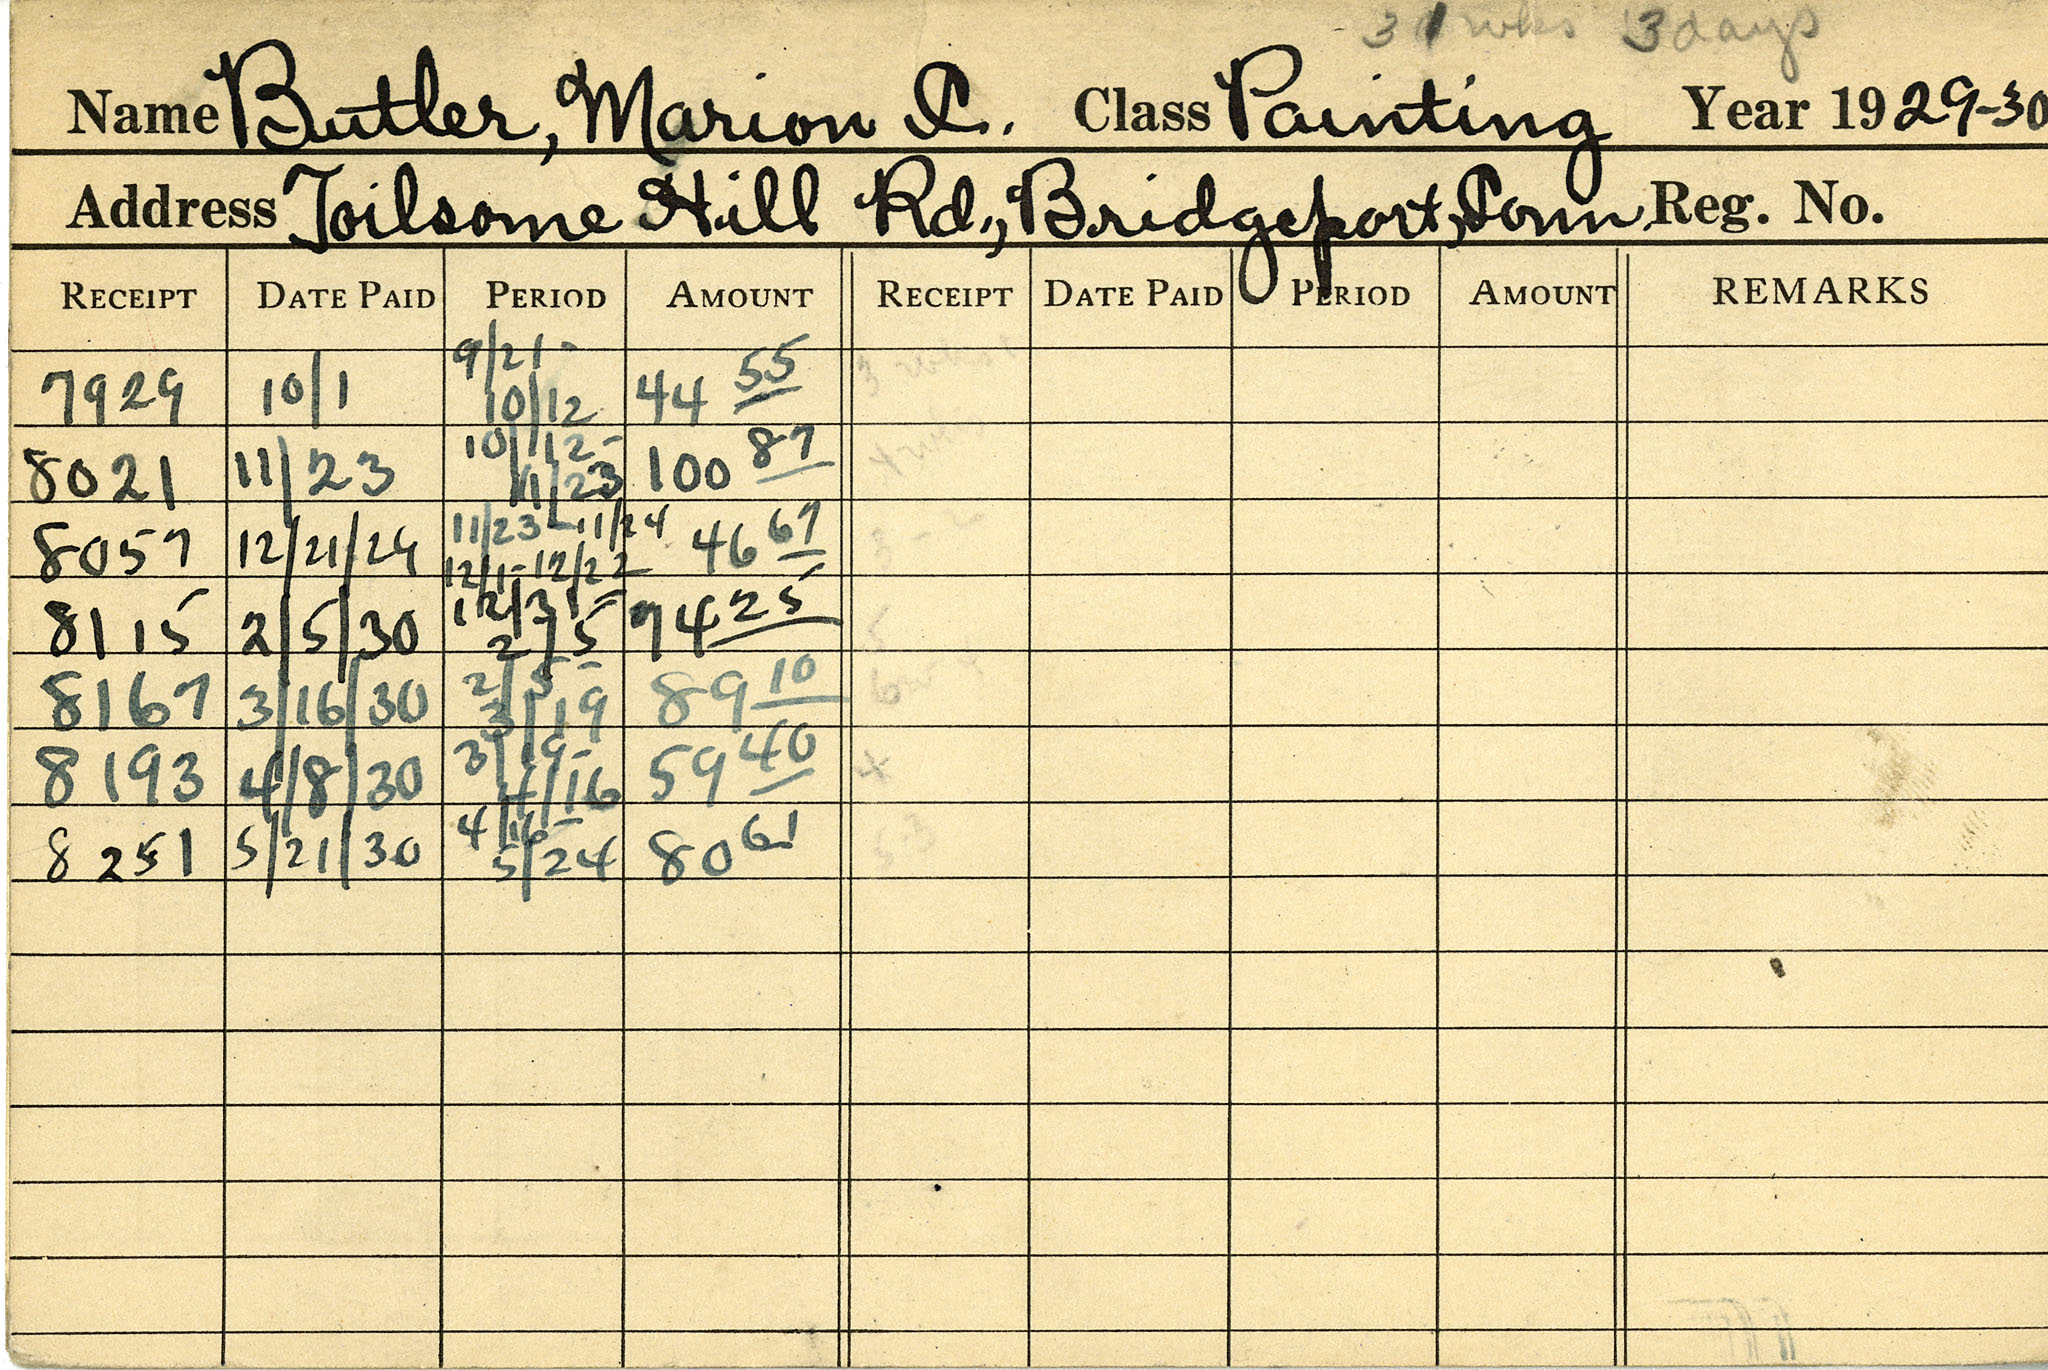 31 wks 3 days
Name Butler, Marion C. Class Painting Year 1929-30
Address Toilsome Hill Rd., Bridgeport, Conn. Reg. No.
RECEIPT DATE PAID PERIOD AMOUNT RECEIPT DATE PAID PERIOD AMOUNT REMARKS
7929 10/1 9/21- 10/12 44 55
8021 11/23 10/12- 11/23 100 87
8057 12/21/29 11/23-11/24 12/1-12/22 46 67
8115 2/5/30 12/31- 2/5 74 25
8167 3/16/30 2/5- 3/19 89 10
8193 4/8/30 3/19- 4/16 59 40 4
8251 5/21/30 4/16- 5/24 80 61 5-3